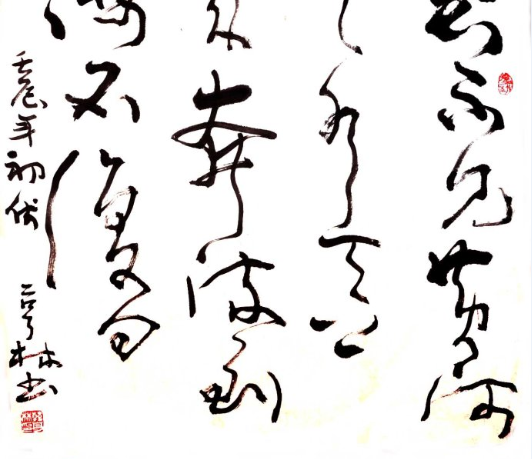 君不见黄河
之水天上
来奔流到
海不复回
壬辰年初伏 亨林书